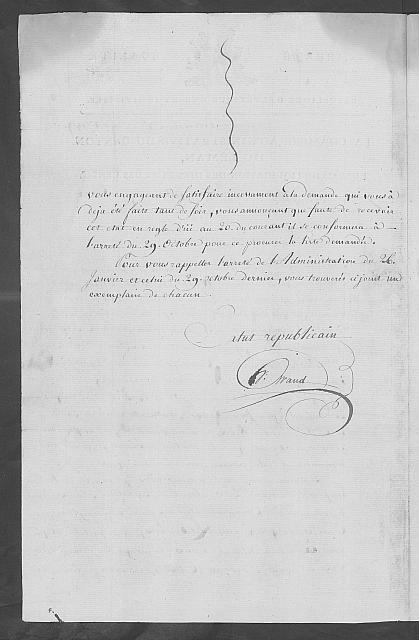 vous engageant de satisfaire incessament à la demande qui vous à
deja été faite tant de fois, vous annonçant que faute de recevoir
cet etat en regle d'ici au 20. du courant il se conformera à
l'arreté du 29. Octobre pour ce procurer le livre demandé.
Pour vous rappeller l'arreté de l'Administration du 26.
Janvier et celui du 29. octobre dernier, vous trouverés cijoint un
exemplaire de chacun.
Salut republicain